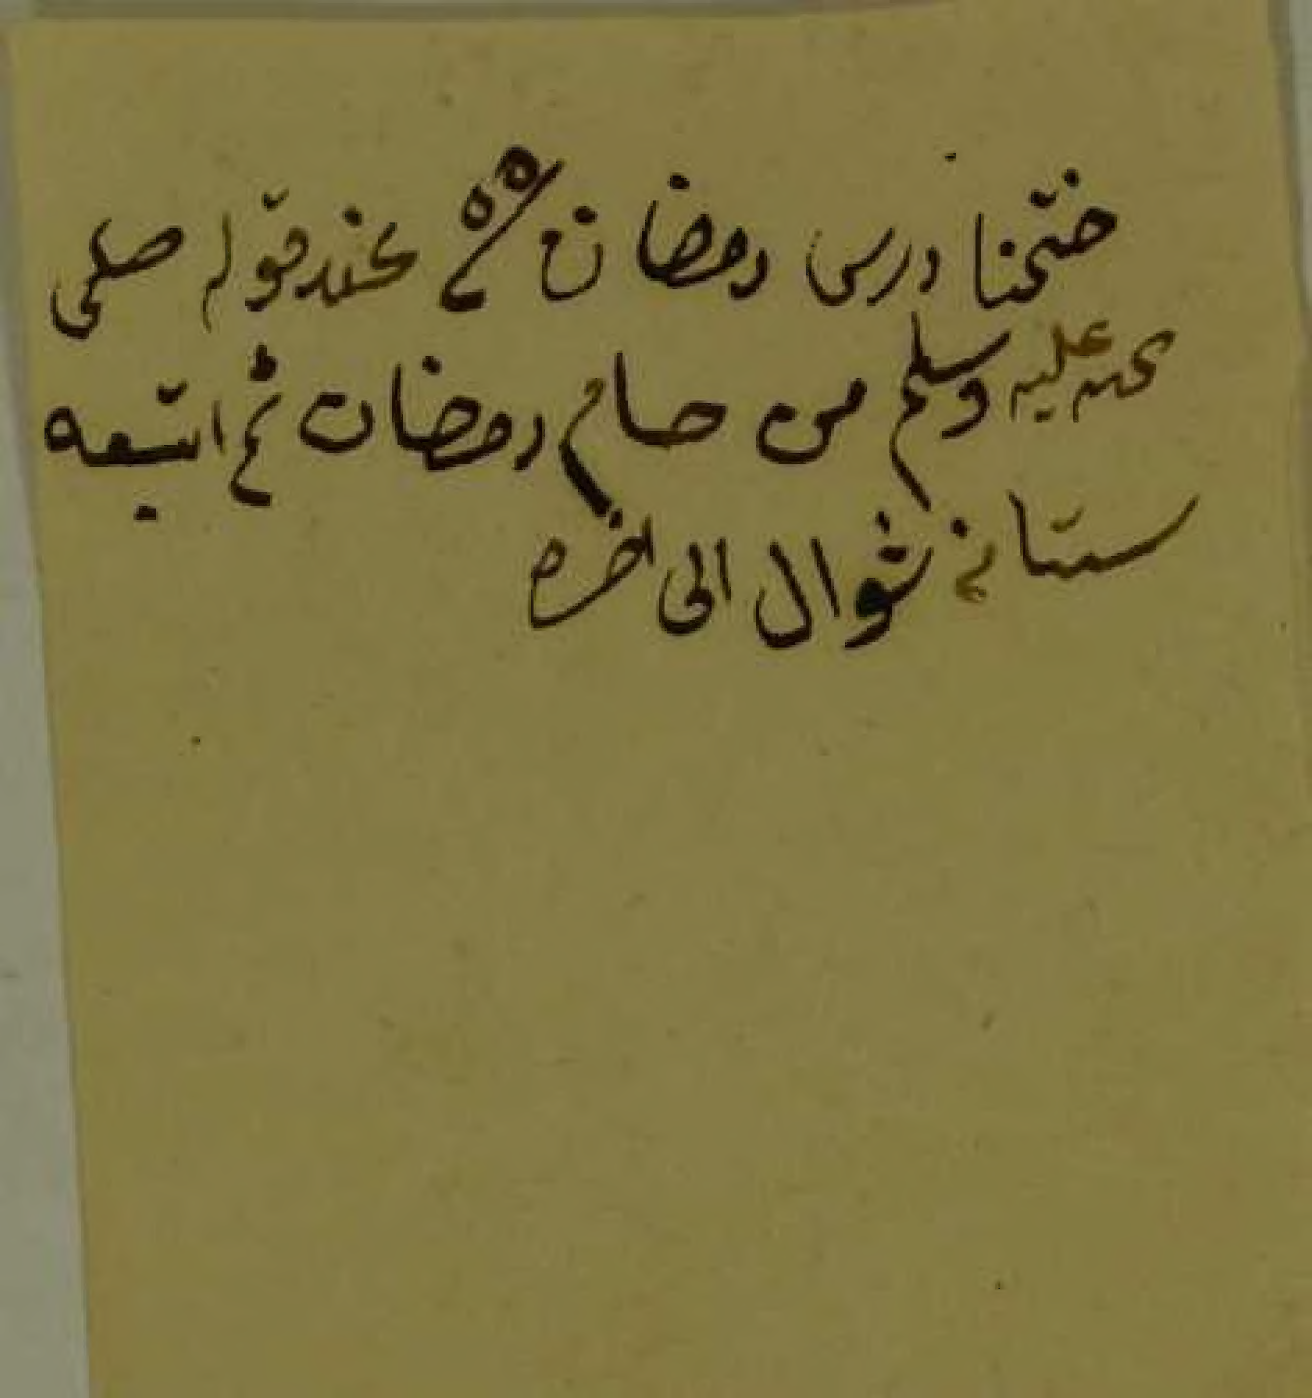 ختمنا درس رمضان ٥٥ عند قوله صلى
الله عليه وسلم من صام رمضان ثم اتبعه
ستا في شوال الى اخره